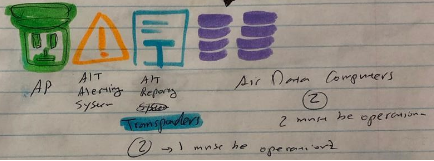 AP
ALT
Alerting
System
Alt
Reporting
System
Transponders
② → 1 must be operational
Air Data Computers
②
2 must be operational